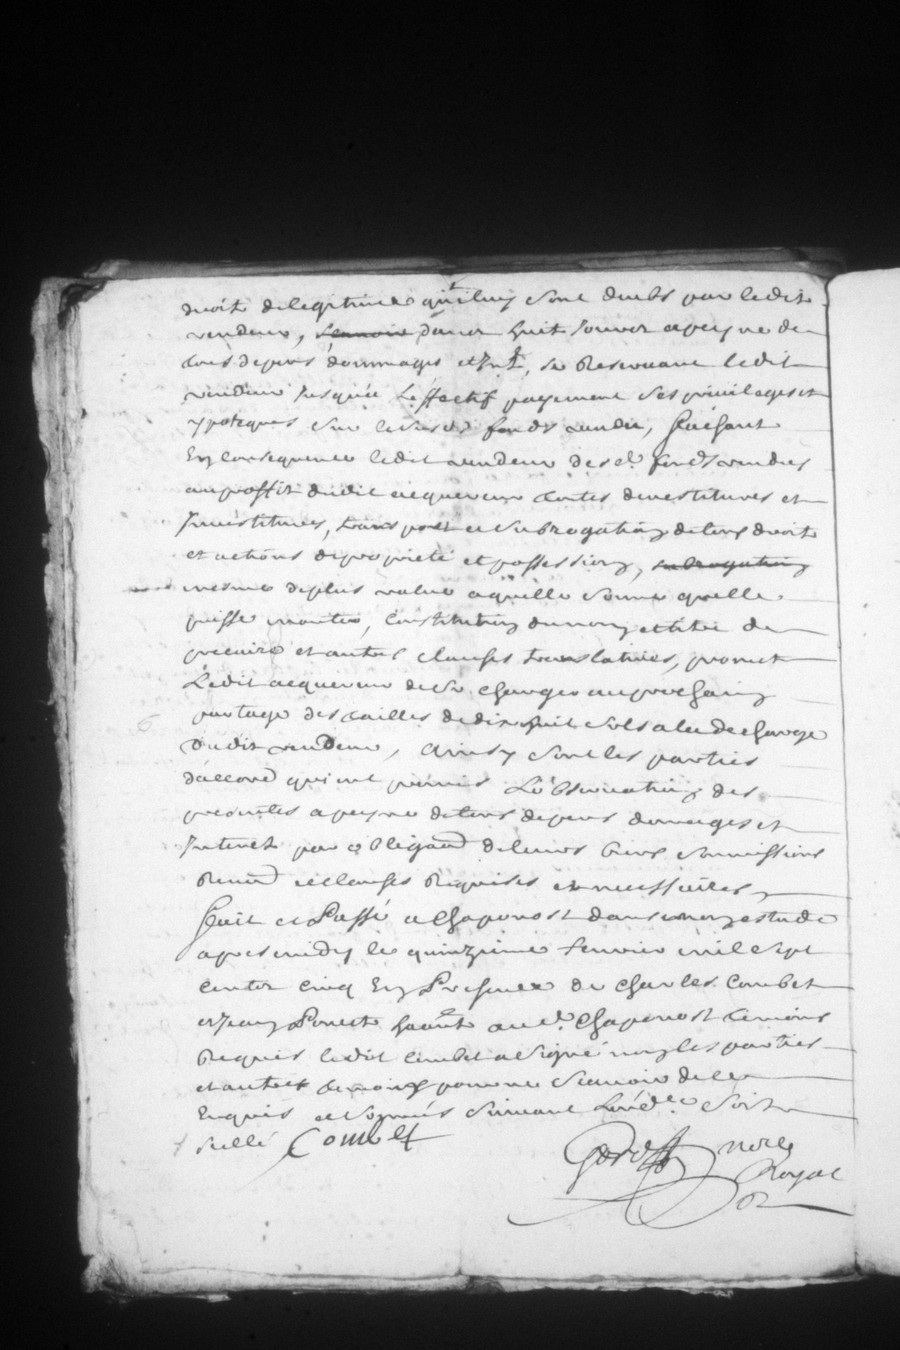 droit de legitime qu'il luy sont deubs par ledit
vendeur, danor huit jour a peyne de
tous depens dommages et Int, se Reservant ledit
vendeur jusques L'effectif payement ses privileges et
ypoteques sur lesdits fonds vendu, faisant
En consequence ledit vendeur desd. fonds vendus
au proffit dudit acquereur toutes devestitures et
Investitures, transport et subrogation de tous droits
et actions de proprieté et possession, subrogation
mesme de plus value a quelle somme quelle
puisse monter, Constitution du nom et titre de
precaire et autres clauses translatives, promet
Ledit acquereur de se charger au prochain
partage des tailles de dix huit sols a la descharge
dudit vendeur, Ainsy sont les parties
d'accord qui ont promis L'observation des
presentes a peyne de tous depens domages et
Interest par obligaon de leurs biens soumissions
Renon et clauses Requises et necessaires,
Fait et Passé a Chaponost dans mon estude
apres midy le quinzieme fevrier mil sept
centz cinq En Presence de Charles Combet
et Jean Ponest habitt aud. Chaponost temoins
Requis ledit Combet a signé non les parties
et autre temoing pour ne scavoir de ce
Enquis et sommés suivant Lord.ce Soit
scellé Combet
nore
Royal